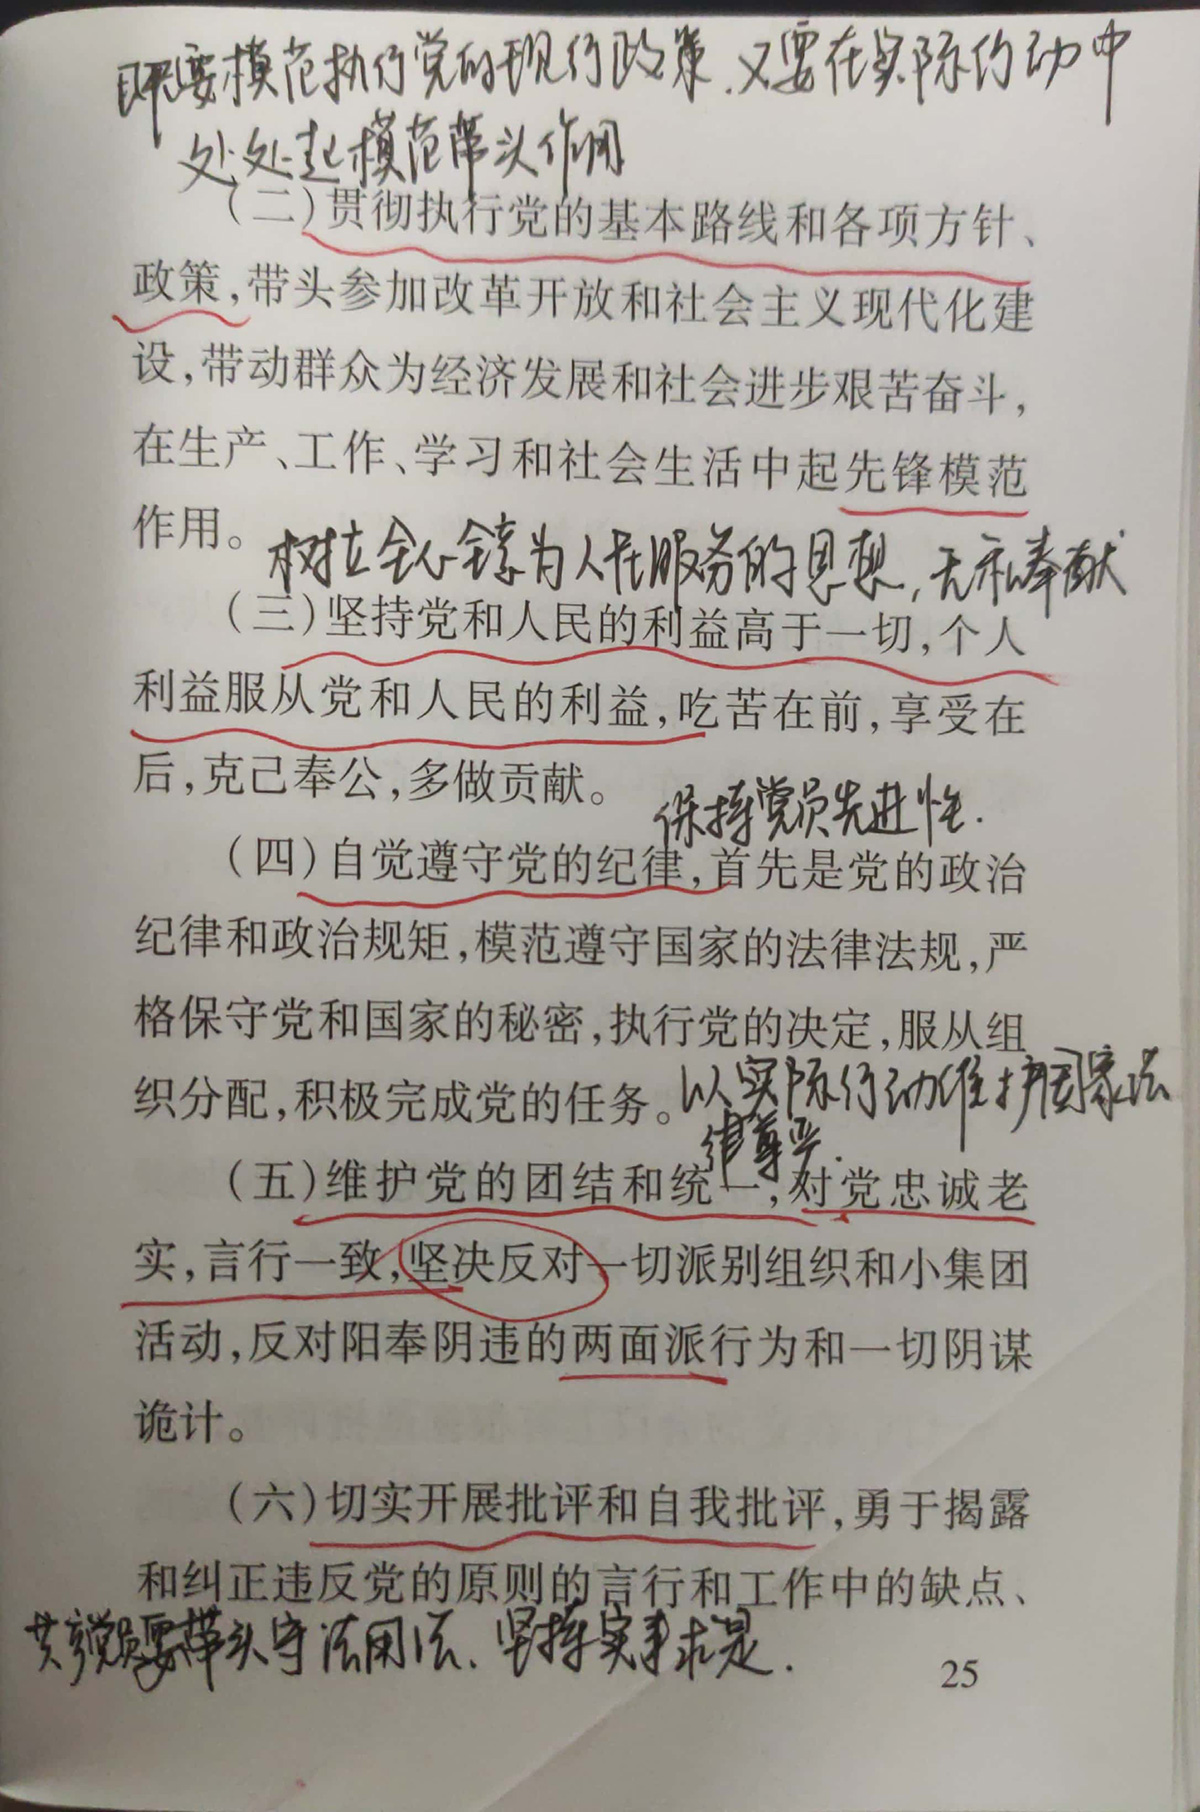 既要模范执行党的现行政策.又要在实际行动中
处处起模范带头作用
（二）贯彻执行党的基本路线和各项方针、
政策，带头参加改革开放和社会主义现代化建
设，带动群众为经济发展和社会进步艰苦奋斗，
在生产、工作、学习和社会生活中起先锋模范
作用。
树立全心全意为人民服务的思想，无私奉献
（三）坚持党和人民的利益高于一切，个人
利益服从党和人民的利益，吃苦在前，享受在
后，克己奉公，多做贡献。
保持党员先进性.
（四）自觉遵守党的纪律，首先是党的政治
纪律和政治规矩，模范遵守国家的法律法规，严
格保守党和国家的秘密，执行党的决定，服从组
织分配，积极完成党的任务。
以实际行动维护国家法
律尊严.
（五）维护党的团结和统一，对党忠诚老
实，言行一致，坚决反对一切派别组织和小集团
活动，反对阳奉阴违的两面派行为和一切阴谋
诡计。
（六）切实开展批评和自我批评，勇于揭露
和纠正违反党的原则的言行和工作中的缺点、
共产党员要带头守法用法.坚持实事求是.
25